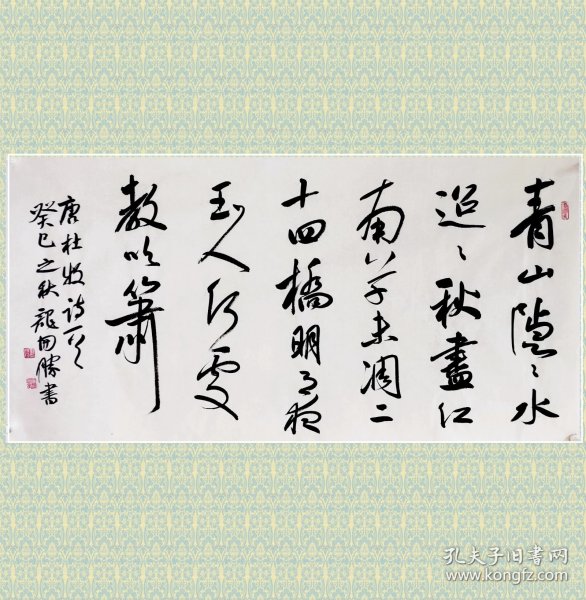 青山隐〻水
迢〻秋尽江
南草未凋二
十四橋明月夜
玉人何処
教吹簫
唐杜牧诗一首
癸巳之秋龍田勝書
孔夫子旧书网
www.kongfz.com